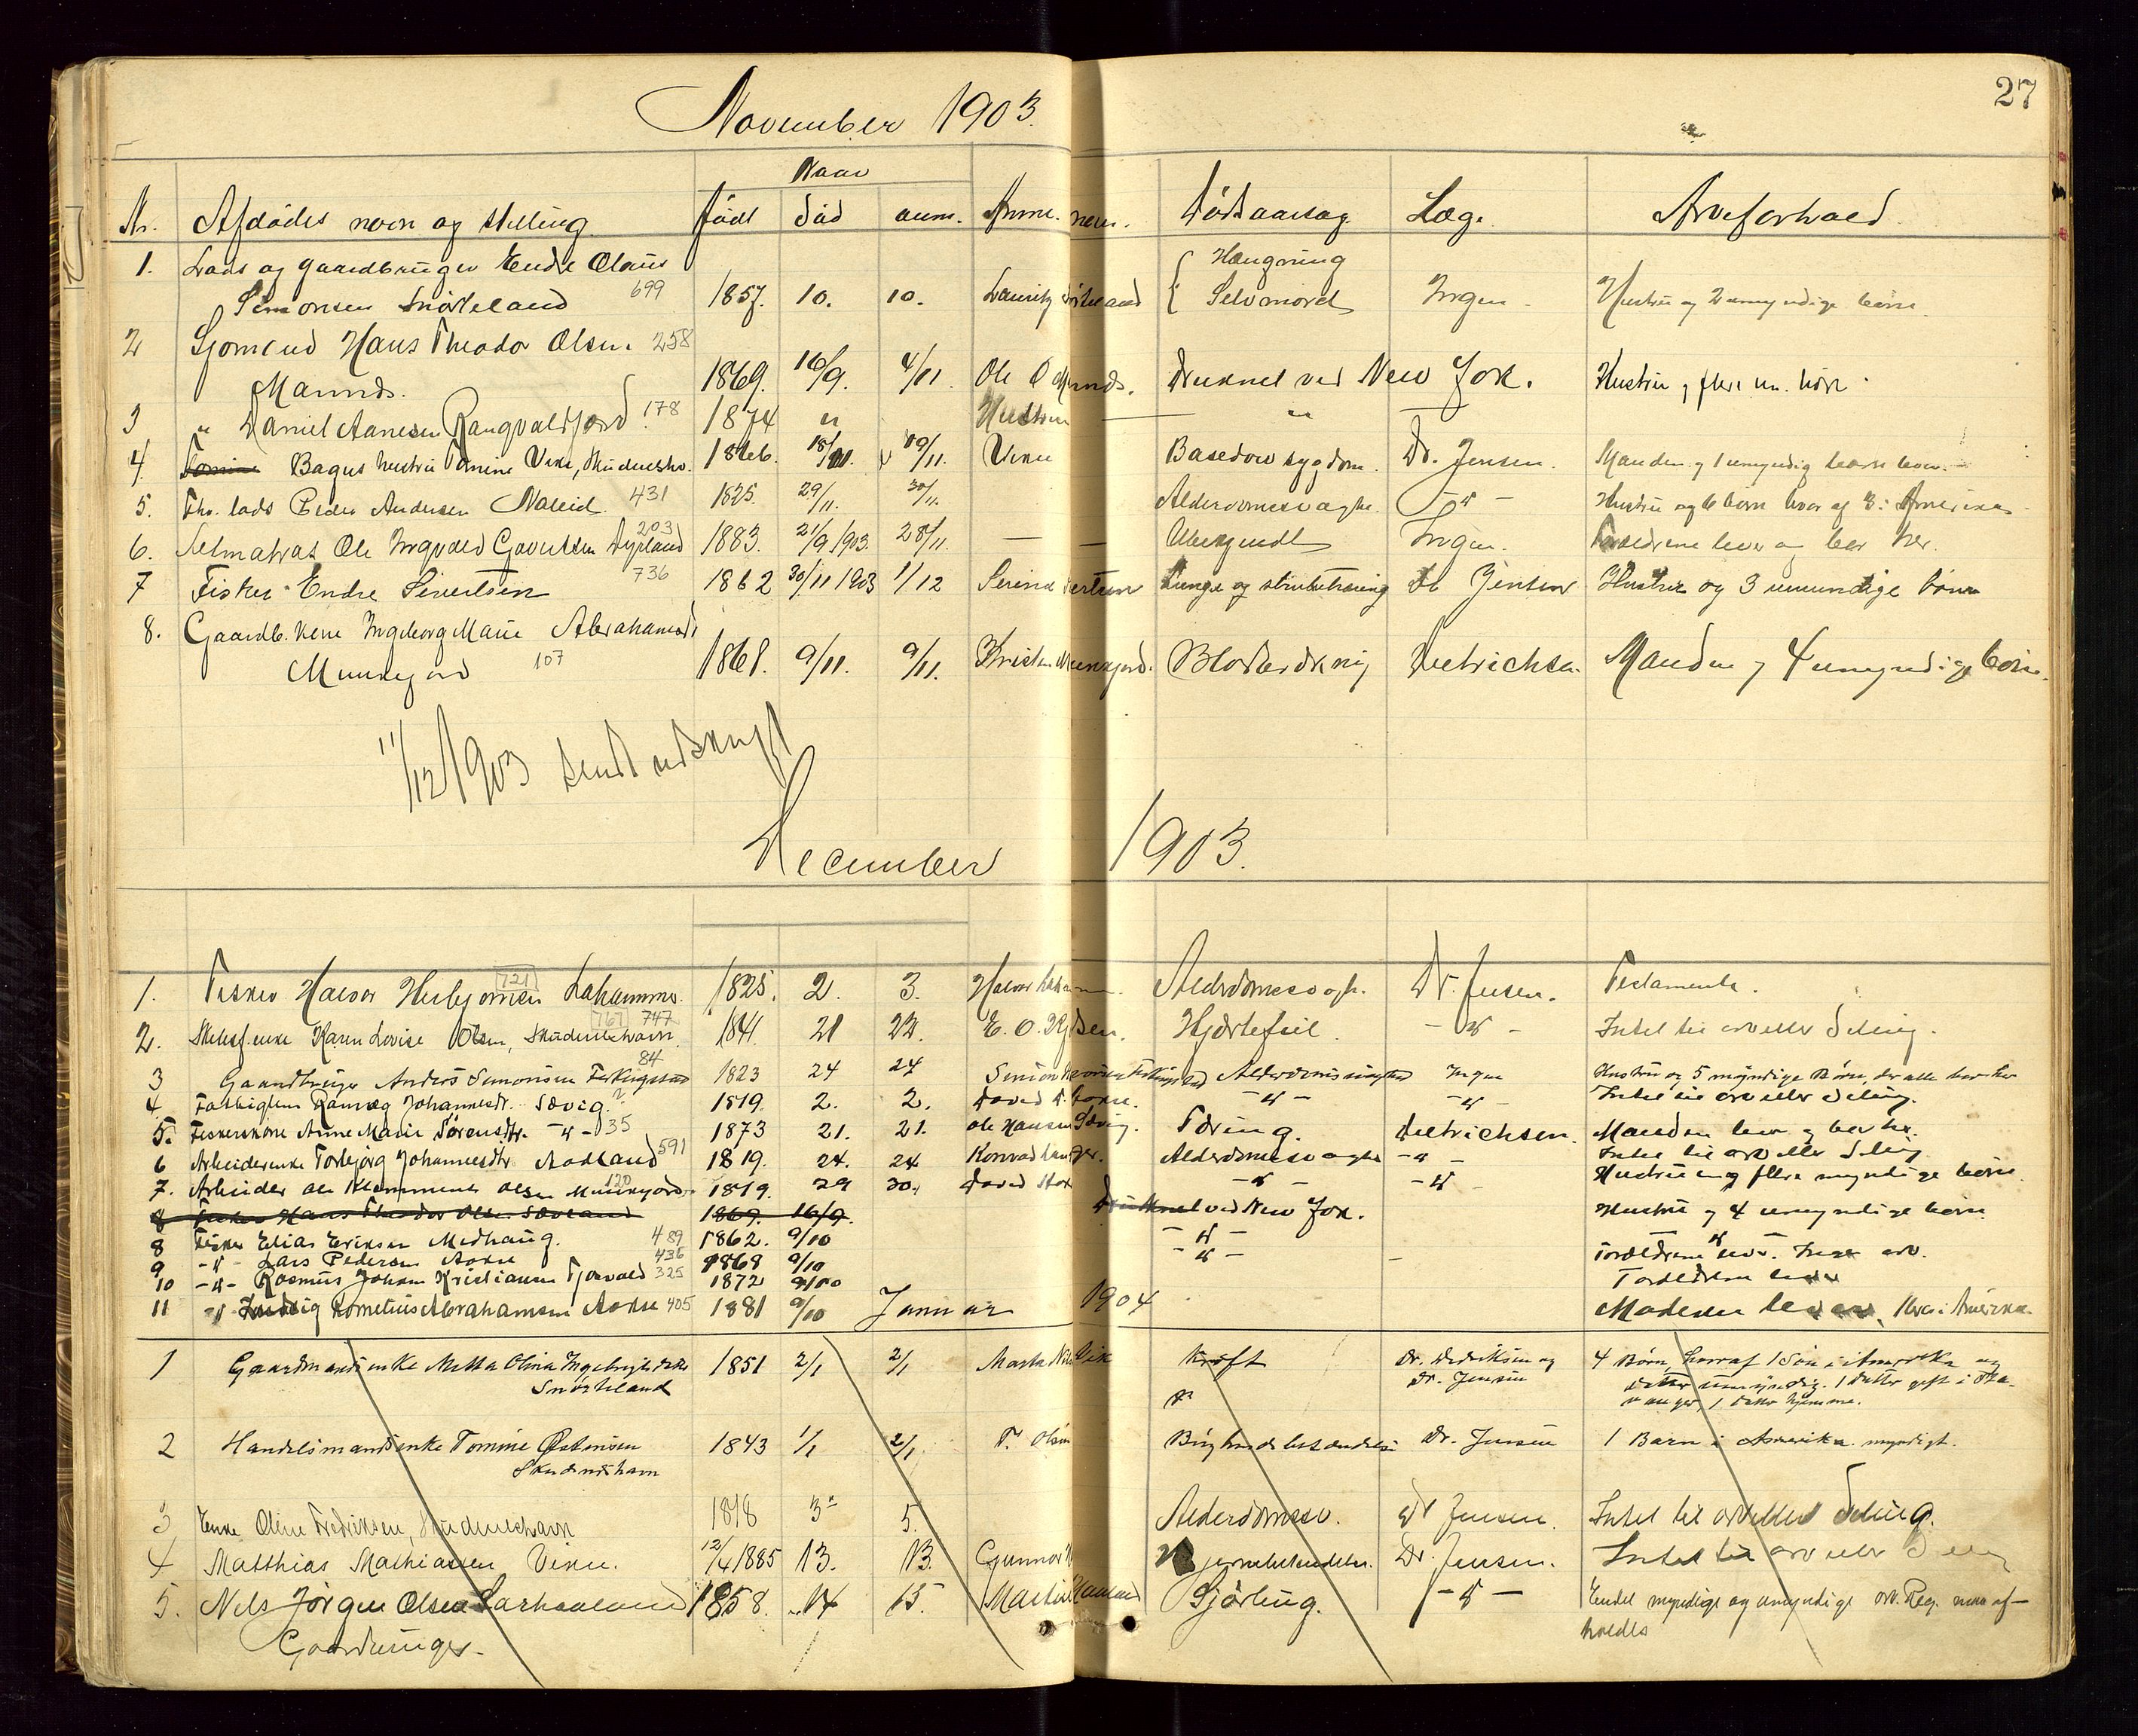 27
November 1903
Naar
Nr. Afdødes navn og stilling. født død anm. Anmelderen. Dødsaarsag. Læge. Arveforhold.
1. Lods og gaardbruger Endre Olaus
Simonsen Snørteland 699 1857. 10. 10. Lauritz Snørteland { Hængning Selvmord Ingen Hustru og 2 umyndige børn.
2 Sjømand Hans Theodor Olsen 258
Maunds. 1869. 16/9. 4/11. Ole O Munds. Druknet ved New Jork. Hustru og flere um. børn.
3 " Daniel Aanesen Rangvaldfjord 178 1874 " Hustru — " —
4. Bagers hustru Tomine Vikre, Skudeneshv. 1866. 18/11. 19/11. Vikre Basedow sygdom. Dr. Jensen. Manden og 1 umyndig barn lever.
5. Fhv. lods Peder Andersen Naleid. 431 1825. 29/11. 30/11. Alderdomssvaghe. - " - Hustru og 6 børn hvor af 3 i Amerika.
6. Selmatros Ole Ingvald Gautesen Dyrland 203 1883. 21/9 1903. 28/11. — — Ubekjendt Ingen. Forældrene lever og bor her.
7 Fisker Endre Sivertsen 736 1862 30/11 1903 1/12 Serina Sivertsen Lunge og strubetæring Dr Jensen Hustru og 3 umundige børn
8. Gaardb. kone Ingeborg Marie Abrahamsdr
Munkejord 107 1861. 9/11. 9/11. Kristen Munkejord. Blodstyrkning Dietrichsen. Manden og 4 umyndige børn.
11/12 1903 sendt udskrift
December 1903.
1. Fisker Halvor Herbjørnsen Lahammer. 721 1825. 2. 3. Halvor Lahammer. Alderdomssvagh. Dr. Jensen. Testamente.
2. Skibsf. enke Karen Lovise Olsen, Skudeneshavn. 767 747 1841. 21 22. E. O. Olsen. Hjertefeil - " - Intet til arv eller deling.
3 Gaardbruger Anders Simonsen Ferkingstad 84 1823 24 24 Simon Alderdomssvaghed Ingen Hustru og 5 myndige Børn, der alle bor her
4. Fattiglem Ranveg Johannesdr. Sævig. 2 1819. 2. 2. David A. Stokse. - " - - " - Intet til arv eller deling.
5. Fiskerskone Anne Marie Sørensdtr. - " - 35 1873 21. 21. Ole Hansen Sævig. Tæring. Dietrichsen. Manden lever og bor her.
6 Arbeiderenke Torbjørg Johannesdtr Aadland 591 1819. 24. 24 Konrad Alderdomssvaghe - " - Intet til arv eller deling
7. Arbeider Ole Klemmentsen Olsen Munkejord 120 1819. 29 30. David Stok - " - - " - Hustru og flere myndige børn.
8 Fisker Hans Theodor Olsen Sævland 1869. 16/9. Druknet ved New Jork. Hustru og 4 umyndige børn
8 Fisker Elias Eriksen Medhaug. 489 1862. 9/10 - " - - " -
9 - " - Lars Pedersen Aakre 436 1868 9/10 - " - — Forældrene lever. Ingen arv.
10 - " - Rasmus Johan Kristiansen Tjosvold 325 1872 9/10 Forældrene lever
11 - " - Ludvig Kornelius Abrahamsen Aakre 405 1881 9/10 Moderen lever. i Amerika.
Januar 1904
1 Gaardmandsenke Metta Olina Ingebrigtsdtr 1851 2/1 2/1 Marta Vik Kræft Dr. Dedriksen og 4 Børn, hvoraf 1 Søn i Amerika og
Snørteland Dr. Jensen datter umyndig. 1 datter gift i Sta-
vanger, 1 datter hjemme.
2 Handelsmandsenke Tomine Østensen 1843 1/1 2/1 T. Olsen Brysthindebetændelse Dr. Jensen 1 Barn i Amerika. myndigt.
Skudeneshavn
3 Enke Oline Fredriksen, Skudeneshavn 1818 3 5. Alderdomssv. Dr Jensen. Intet til arv eller deling.
4 Matthias Mathiassen Vikre. 12/4 1885 13. 13. Gunnar Hjernebetændelse. Dr. Jensen. Intet til arv eller deling
5. Nels Jørgen Olsen Sørhaaland 1858. 14 15. Martin Haaland Gjørtlug. - " - Endel myndige og umyndige arv. Reg. maa af-
Gaardbruger. holdes